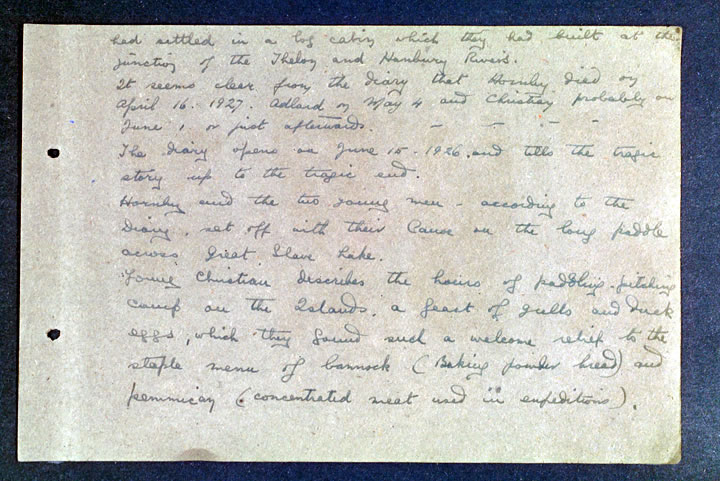 had settled in a log cabin which they had built at the
junction of the Thelon and Hanbury Rivers.
It seems clear from the diary that Hornby died on
April 16. 1927. Adlard on May 4 and Christian probably on
June 1 or just afterwards. - - - -
The diary opens on June 15 - 1926. and tells the tragic
story up to the tragic end.
Hornby and the two young men - according to the
Diary, set off with their Canoe on the long paddle
across Great Slave Lake.
Young Christian describes the hours of paddling. pitching
camp on the Islands, a feast of gulls and duck
eggs, which they found such a welcome relief to the
staple menu of bannock (Baking powder bread) and
pemmican (concentrated meat used in expeditions).